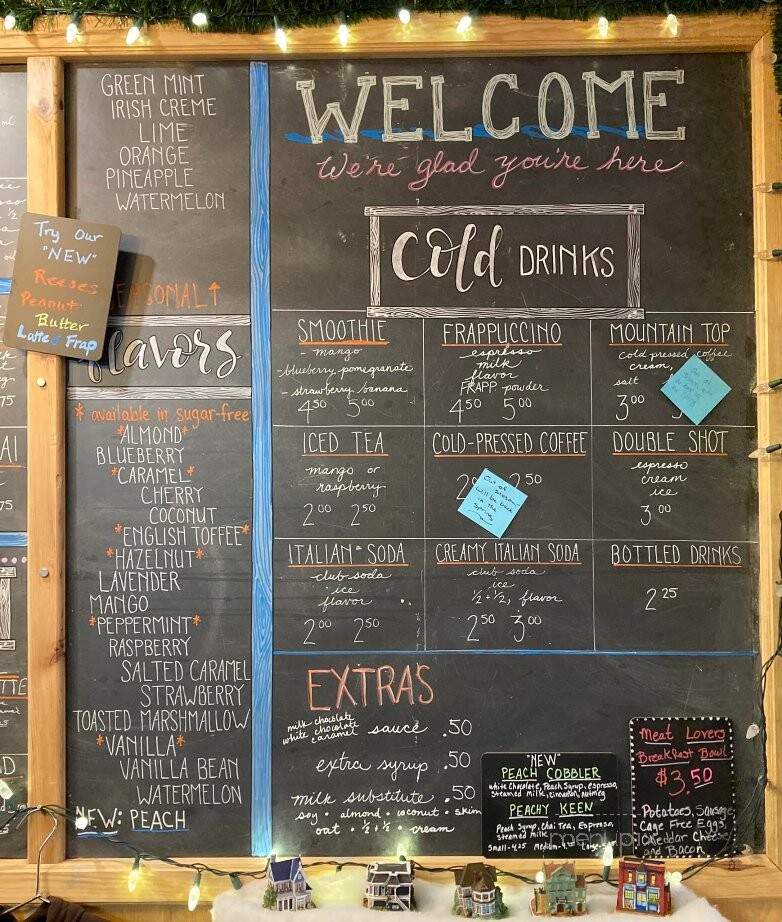 GREEN MINT
IRISH CREME
LIME
ORANGE
PINEAPPLE
WATERMELON
Try Our
"NEW"
Reeses
Peanut
Butter
Latte Frap
flavors
* available in sugar-free
*ALMOND*
BLUEBERRY
*CARAMEL*
CHERRY
COCONUT
*ENGLISH TOFFEE*
*HAZELNUT*
LAVENDER
MANGO
*PEPPERMINT*
RASPBERRY
SALTED CARAMEL
STRAWBERRY
TOASTED MARSHMALLOW
*VANILLA*
VANILLA BEAN
WATERMELON
NEW: PEACH
WELCOME
We're glad you're here
Cold DRINKS
SMOOTHIE
- mango
- blueberry pomegranate
- strawberry banana
4 50 5 00
FRAPPUCCINO
espresso
milk
flavor
FRAPP powder
4 50 5 00
MOUNTAIN TOP
cold pressed coffee
cream,
salt
3 00
ICED TEA
mango or
raspberry
2 00 2 50
COLD-PRESSED COFFEE
2 50
Out of
season
will be back
in the
Spring
DOUBLE SHOT
espresso
cream
ice
3 00
ITALIAN SODA
club soda
ice
flavor
2 00 2 50
CREAMY ITALIAN SODA
club soda
ice
½ • ½, flavor
2 50 3 00
BOTTLED DRINKS
2 25
EXTRAS
milk chocolate
white chocolate
caramel sauce .50
extra syrup .50
milk substitute .50
soy • almond • coconut • skim
oat • ½ • ½ • cream
"NEW"
PEACH COBBLER
white Chocolate, Peach Syrup, espresso,
steamed milk, cinnamon, nutmeg
PEACHY KEEN
Peach Syrup, Chai Tea, Espresso,
steamed milk
Meat Lovers
Breakfast Bowl
$3.50
Potatoes, Sausage
Cage Free Eggs,
Cheddar Cheese
and Bacon